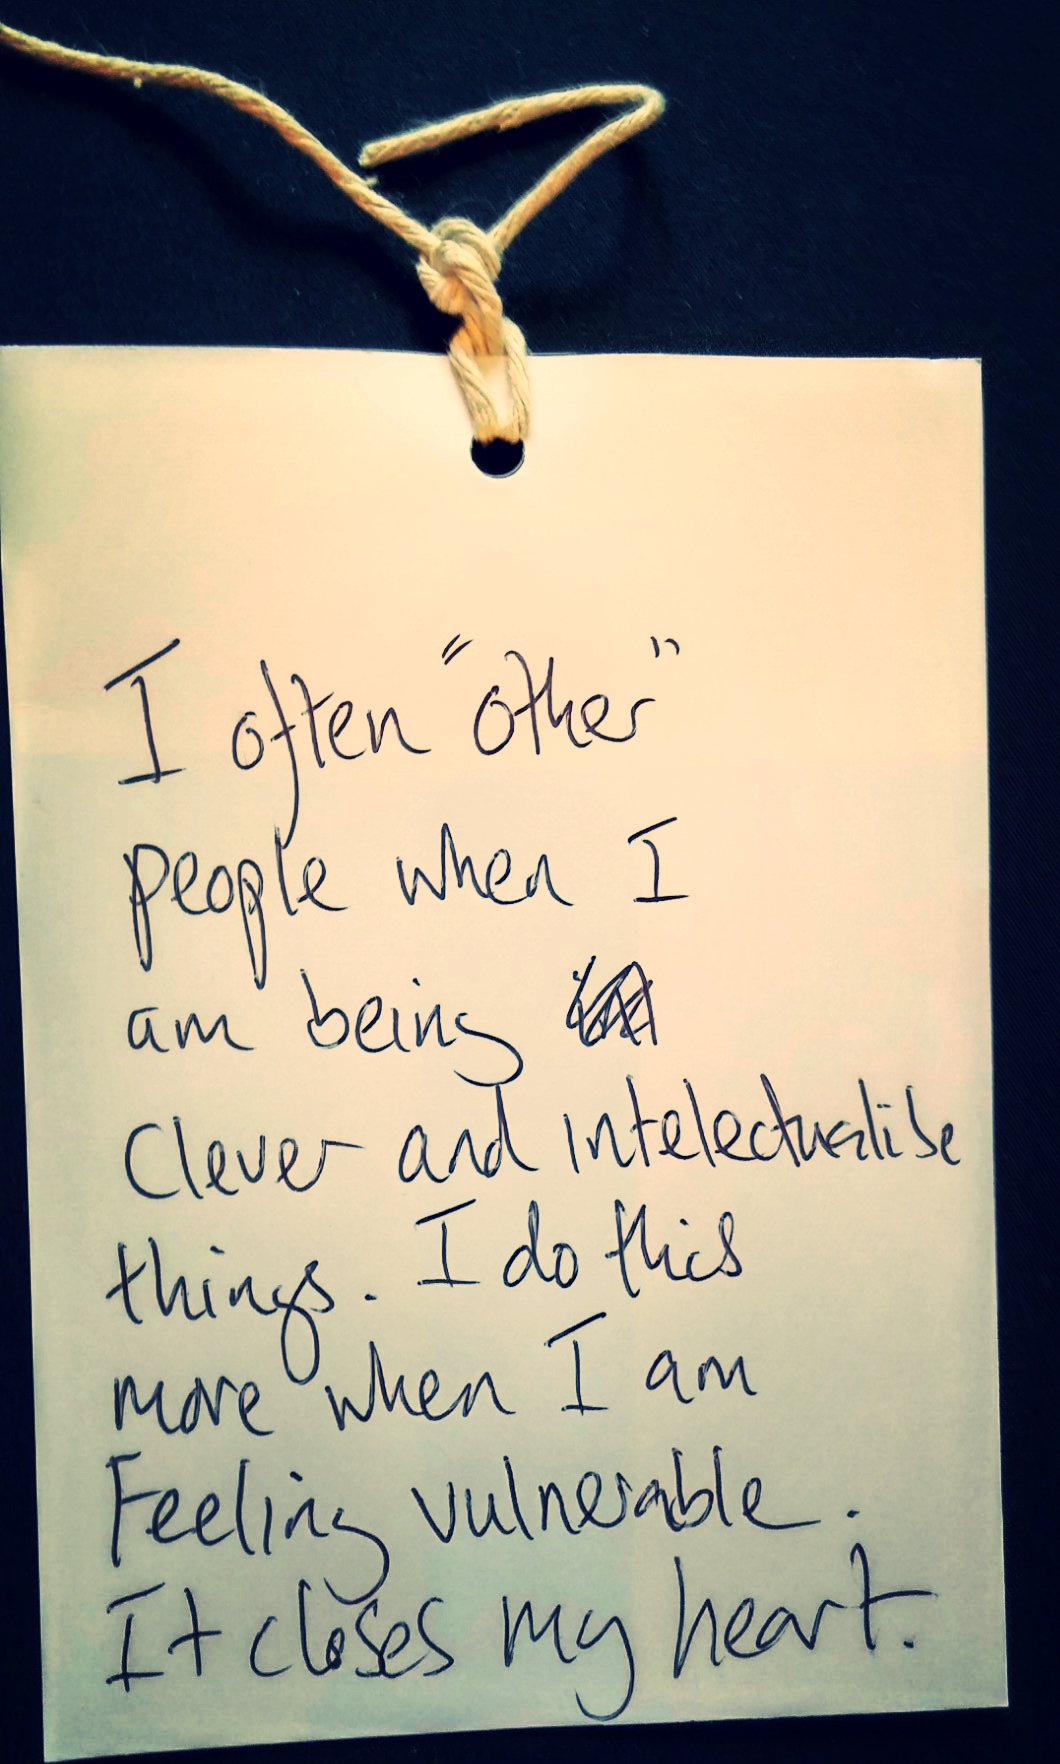 I often "other"
people when I
am being
Clever and intelectualise
things. I do this
more when I am
Feeling vulnerable.
It closes my heart.